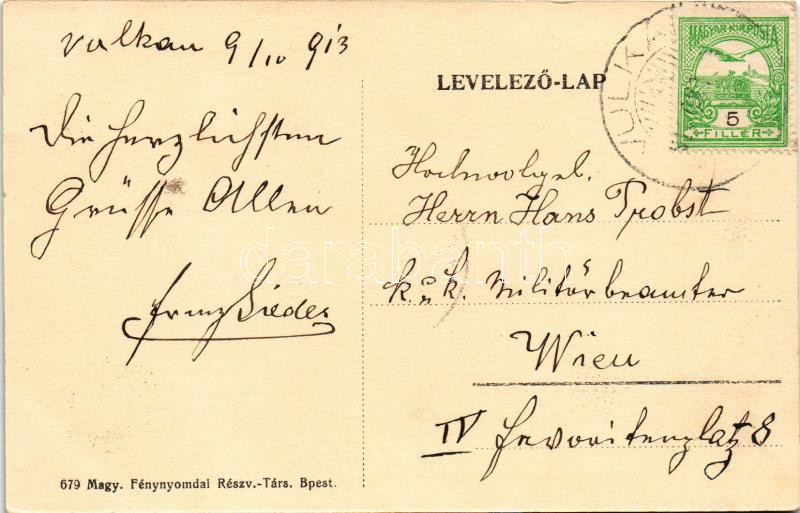 Vulkan 9/10 913
Die herzlichsten
Grüsse Allen
Franz Lieder
679 Magy. Fénynyomdai Részv.-Társ. Bpest.
LEVELEZŐ-LAP
Hochwohlgeb.
Herrn Hans Probst
k. u. k. Militärbeamter
Wien
IV Favoritenplatz 8
MAGYAR·KIR·POSTA
5
FILLÉR
VULKÁN
darabanth